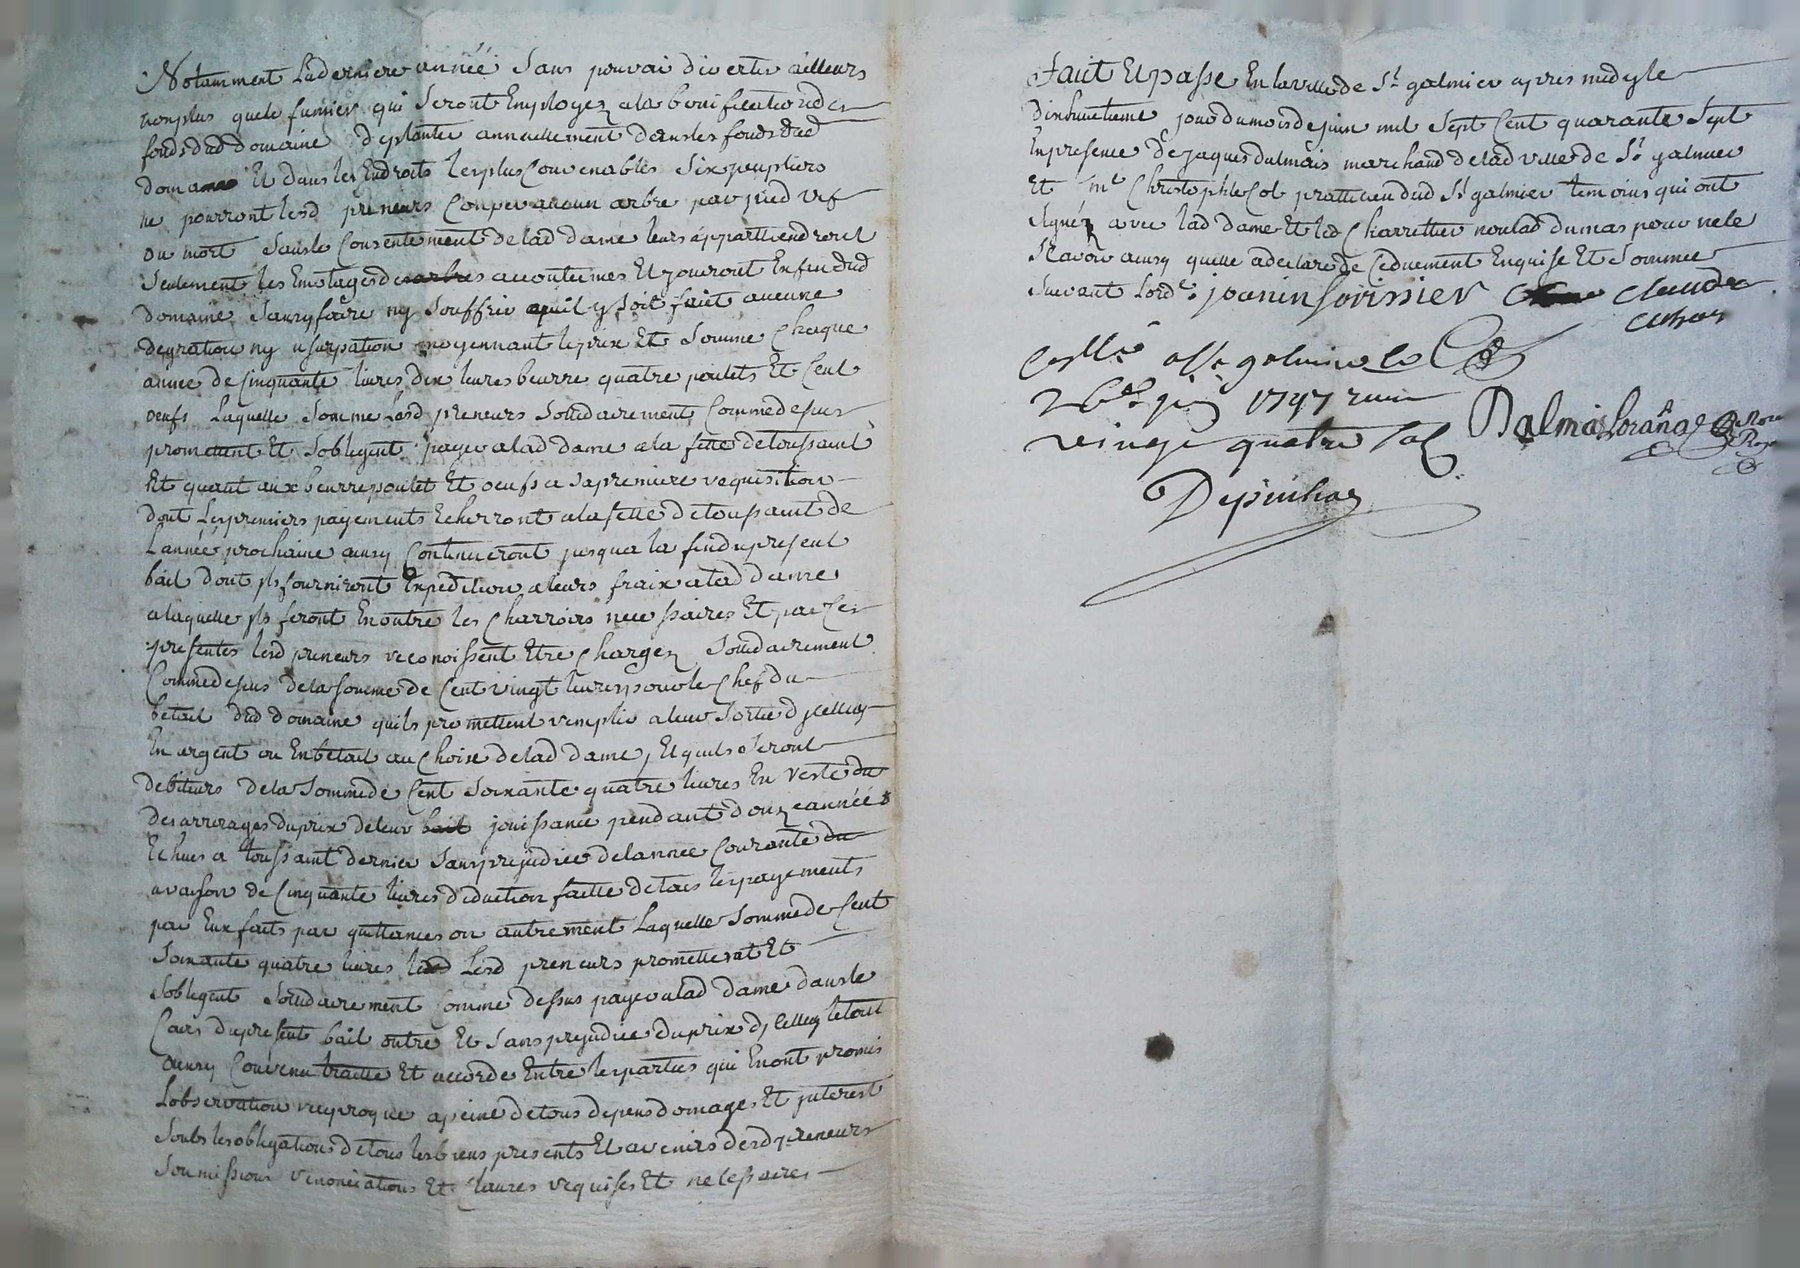 Notamment La derniere année Sans pouvoir divertir ailleurs
nonplus que le fumier qui seront Employez a la bonification des
fonds dud domaine de planter annuellement dans les fonds dud
domaine Et dans les Endroits les plus Convenables Six peupliers
ne pourront lesd preneurs Couper aucun arbre par pied vif
ou mort Sans le Consentement de lad dame leurs appartiendront
Seulement les Emotages des arbres accoutumes Et jouiront En fin dud
domaine Sans y faire ny Souffrir quil y Soit fait aucune
degration ny usurpation moyennant le prix Et Somme Chaque
année de Cinquante livres dix livres beurre quatre poulets Et Cent
oeufs Laquelle Somme Lesd preneurs Solidairement Comme desus
promettent Et Soblegent payer a lad dame a la fette de toussaint
Et quant aux beurre poulet Et oeufs a Sa premiere requisition
dont Les premiers payements Echerront a la fette de toussaint de
Lannéé prochaine ainsy Continueront jusqua la fin du present
bail dont ils fourniront Expedition a leurs fraix a lad dame
a laquelle ils feront En outre les Charrois necessaires Et par Ces
presentes lesd preneurs reconoissent Etre Chargez Solidairement
Comme desus de la Somme de Cent vingt livres pour le Chef du
betail dud domaine quils promettent remplir a leur Sortie dicelluy
En argent ou En betail au Choix de lad dame, Et quils Seront
debiteurs de la Somme de Cent Soixante quatre livres En reste du
des arrerages du prix de leur bail jouissance pendant douze années
Echues a toussaint dernier Sans prejudice de lannee Courante du
a raison de Cinquante livres diduction faitte de tous les payements
par Eux faits par quittances ou autrement Laquelle Somme de Cent
Soixante quatre livres Lesd preneurs promettent Et
Soblegent Solidairement Comme dessus payer a lad dame dans le
Cours du present bail outre Et Sans prejudice du prix dicelluy le tout
ainsy Convenu traitte Et accorde Entre les parties qui En ont promis
Lobservation reciproque a peine de tous depens domages Et interest
Soubs les obligations de tous les biens presents Et avenirs desd preneurs
Soumissions renonciations Et Clauses requises Et necessaires
Fait Et passe En la ville de St galmier apres midy le
dixhuitieme jour du mois de juin mil Sept Cent quarante Sept
En presence de Sr jaques dalmais marchand de lad ville de St galmier
Et Mr Christophle Col pratticien dud St galmier temoins qui ont
Signéz avec lad dame Et led Charrettier non lad dumas pour ne le
Scavoir ainsy quelle a declare de Ceduement Enquise Et Sommee
Suivant Lordce. janin fovirnier claude
Coll
Collé a St galmier le
26e juin 1747 recu
vingt quatre sols
Dalmais Lorañge
Depinhac